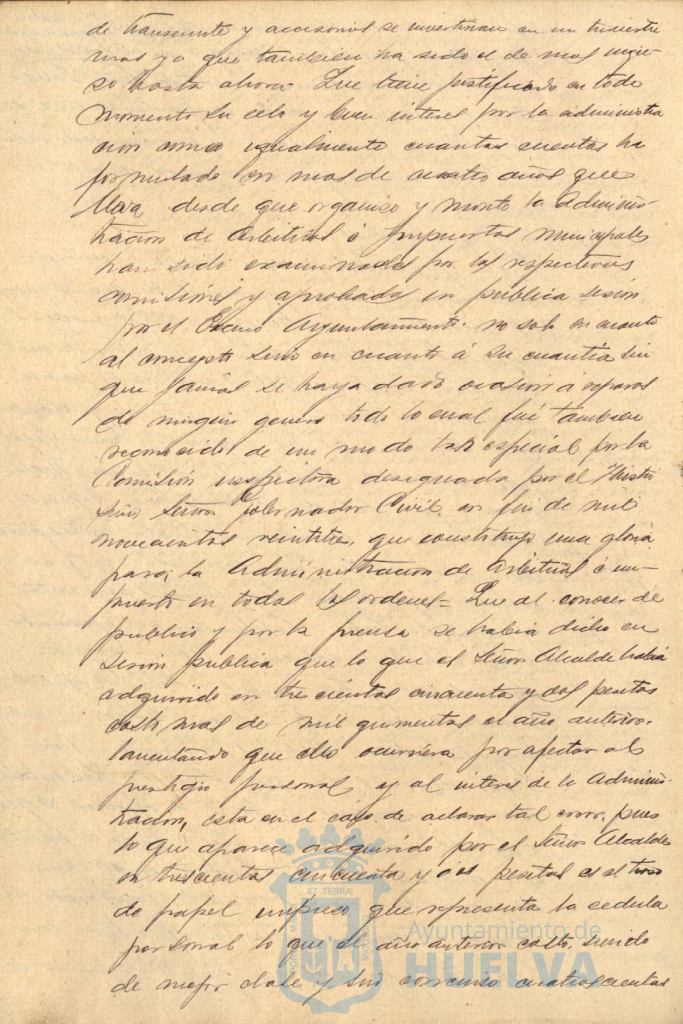 de transeunte y accesorios se invertirian en un trimestre
mas ya que tambien ha sido el de mas ingre-
so hasta ahora. Que tiene justificado en todo
momento su celo y buen interes por la administra
cion como igualmente cuantas cuentas ha
formulado en mas de cuatro años que
lleva desde que organizo y monto la Adminis-
tracion de Arbitrios é Impuestos municipales
han sido examinadas por las respectivas
comisiones y aprobadas en publica sesion
por el Excmo Ayuntamiento. no solo en cuanto
al concepto sino en cuanto á su cuantia sin
que jamas se haya dado ocasion á reparos
de ningun genero todo lo cual fué tambien
reconocido de un modo tan especial por la
Comisión inspectora designada por el Ilustri
simo Señor Gobernador Civil en fin de mil
novecientos veintitres, que constituyo una gloria
para la Administracion de Arbitrios é im-
puestos en todos los ordenes = Que al conocer de
publico y por la prensa se habia dicho en
sesion publica que lo que el Señor Alcalde habia
adquirido en trescientas cincuenta y dos pesetas
costó mas de mil quinientas el año anterior,
lamentando que ello ocurriera por afectar al
prestigio personal y al interes de la Adminis-
tracion, esta en el caso de aclarar tal error, pues
lo que aparece adquirido por el Señor Alcalde
en trescientas cincuenta y dos pesetas es el trozo
de papel impreso que representa la cedula
personal lo que el año anterior costó, siendo
de mejor clase y sin concurso cuatrocientas
Ayuntamiento de
HUELVA